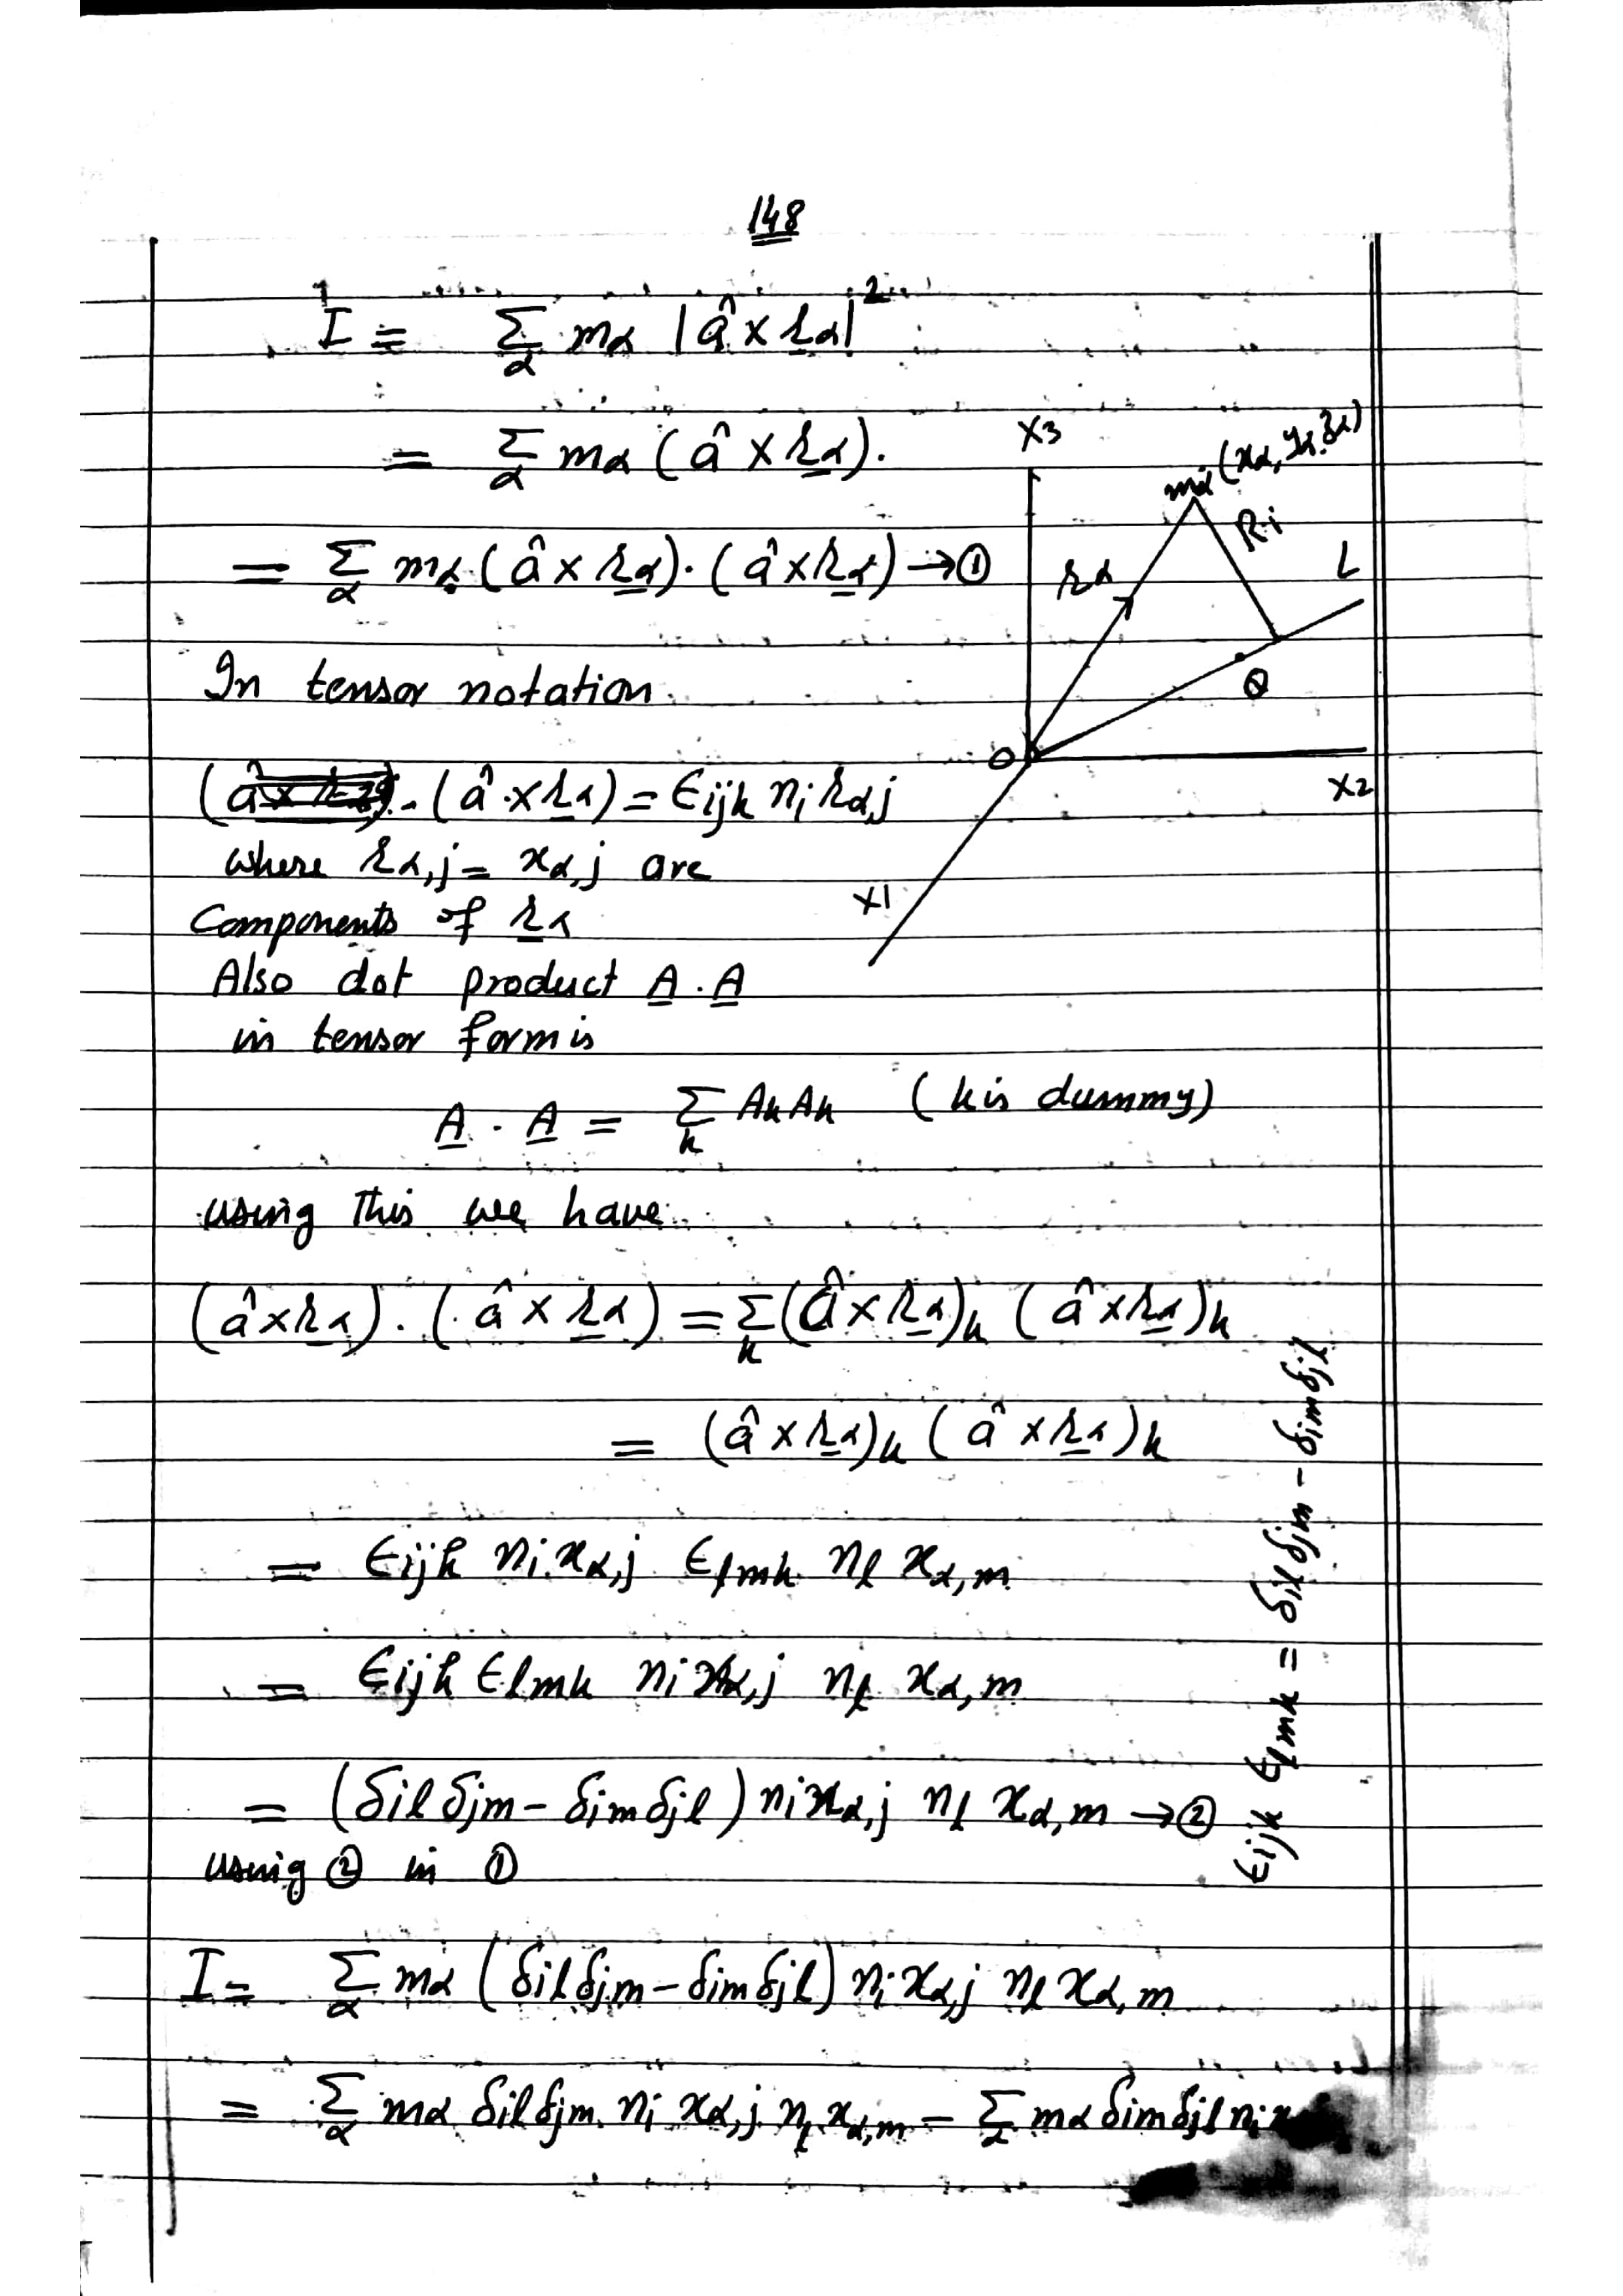 148
I = Σ_α mα |â × r̲α|²
= Σ_α mα (â × r̲α).
= Σ_α mα (â × r̲α) · (â × r̲α) → ①
X3
mα (xα, yα, zα)
Ri
rα
L
Q
O
X2
X1
In tensor notation
(â × r̲α) = ϵijk ni rα,j
where rα,j = xα,j are
Components of r̲α
Also dot product A̲ . A̲
in tensor form is
A̲ . A̲ = Σ_k Ak Ak (k is dummy)
using This we have
(â × r̲α) . (â × r̲α) = Σ_k (â × r̲α)k (â × r̲α)k
= (â × r̲α)k (â × r̲α)k
= ϵijk ni xα,j ϵlmk nl xα,m
= ϵijk ϵlmk ni xα,j nl xα,m
= (δil δjm – δim δjl) ni xα,j nl xα,m → ②
ϵijk ϵlmk = δil δjm – δim δjl
using ② in ①
I = Σ_α mα (δil δjm – δim δjl) ni xα,j nl xα,m
= Σ_α mα δil δjm ni xα,j nl xα,m – Σ_α mα δim δjl ni